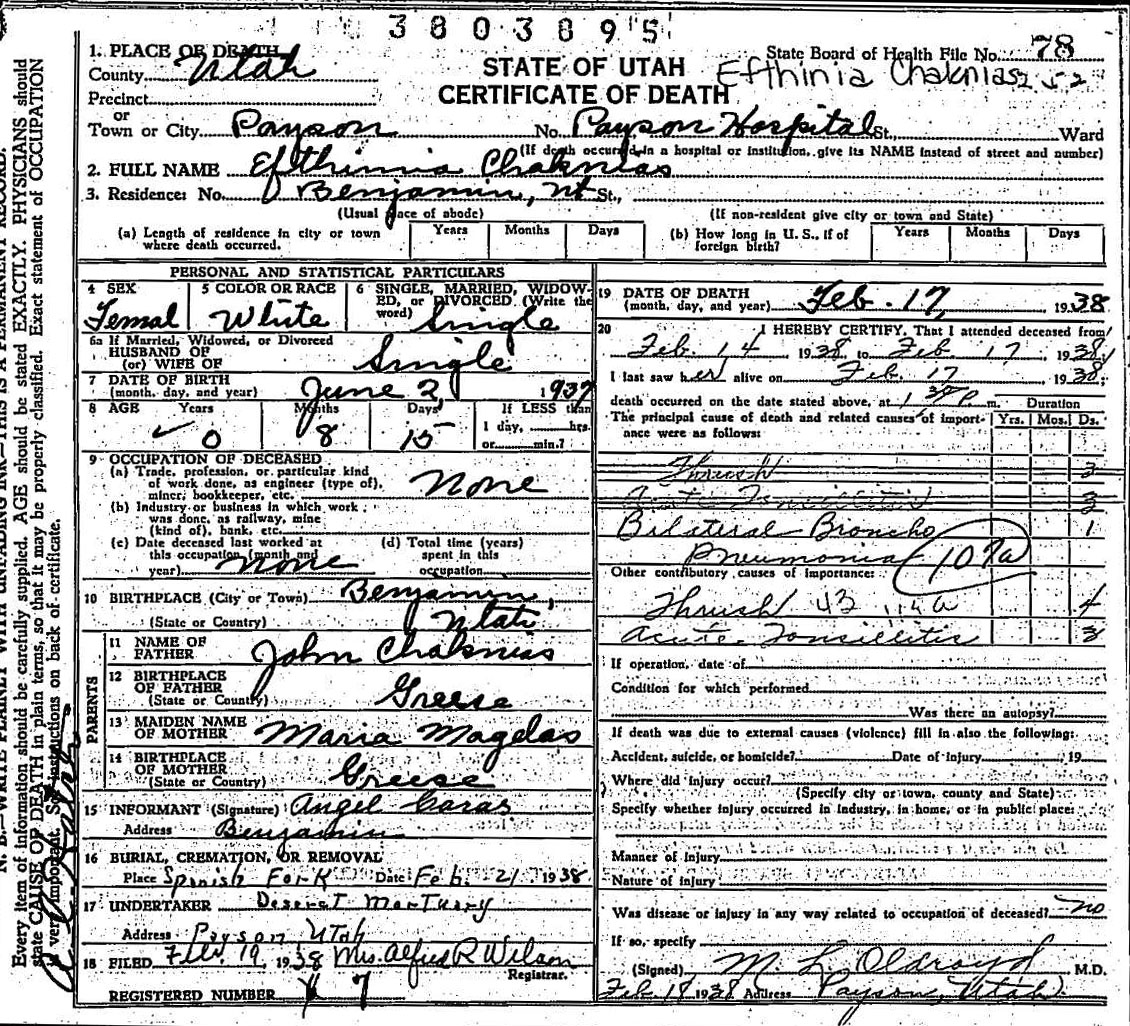 3803895
1. PLACE OF DEATH
County Utah
Precinct
or
Town or City Payson
STATE OF UTAH
CERTIFICATE OF DEATH
State Board of Health File No. 78
Efthinia Chaknias
No. Payson Hospital St. Ward
(If death occurred in a hospital or institution, give its NAME instead of street and number)
2. FULL NAME Efthinnia Chaknias
3. Residence: No. Benjamin, Ut St.,
(Usual place of abode) (If non-resident give city or town and State)
(a) Length of residence in city or town where death occurred. Years Months Days
(b) How long in U. S., if of foreign birth? Years Months Days
PERSONAL AND STATISTICAL PARTICULARS
4 SEX Femal
5 COLOR OR RACE White
6 SINGLE, MARRIED, WIDOW-
ED, or DIVORCED (Write the
word) Single
6a If Married, Widowed, or Divorced
HUSBAND OF
(or) WIFE OF Single
7 DATE OF BIRTH
(month, day, and year) June 2, 1937
8 AGE Years Months Days If LESS than
1 day, hrs.
or min.?
0 8 15
9 OCCUPATION OF DECEASED
(a) Trade, profession, or particular kind
of work done, as engineer (type of),
miner, bookkeeper, etc. None
(b) Industry or business in which work
was done, as railway, mine
(kind of), bank, etc.
(c) Date deceased last worked at
this occupation (month and
year) None
(d) Total time (years)
spent in this
occupation
10 BIRTHPLACE (City or Town) Benjamin,
(State or Country) Utah
PARENTS
11 NAME OF
FATHER John Chaknias
12 BIRTHPLACE
OF FATHER
(State or Country) Greese
13 MAIDEN NAME
OF MOTHER Maria Magelas
14 BIRTHPLACE
OF MOTHER
(State or Country) Greese
15 INFORMANT (Signature) Angel Caras
Address Benjamin
16 BURIAL, CREMATION, OR REMOVAL
Place Spanish Fork Date Feb. 21 1938
17 UNDERTAKER Deseret Mortuary
Address Payson Utah
18 FILED Feb. 19, 1938 Mrs. Alfred R Wilson
Registrar.
REGISTERED NUMBER 7
19 DATE OF DEATH
(month, day, and year) Feb. 17, 1938
20 I HEREBY CERTIFY, That I attended deceased from
Feb. 14 1938, to Feb 17, 1938,
I last saw her alive on Feb. 17 1938,
death occurred on the date stated above, at 1 30 P. m. Duration
The principal cause of death and related causes of import-
ance were as follows: Yrs. Mos. Ds.
Thrush 3
Acute Tonsillitis 3
Bilateral Broncho 1
Pneumonia 107a
Other contributory causes of importance:
Thrush 4
Acute Tonsillitis 3
If operation, date of
Condition for which performed
Was there an autopsy?
If death was due to external causes (violence) fill in also the following:
Accident, suicide, or homicide? Date of injury 19
Where did injury occur?
(Specify city or town, county and State)
Specify whether injury occurred in industry, in home, or in public place:
Manner of injury
Nature of injury
Was disease or injury in any way related to occupation of deceased? no
If so, specify
(Signed) M L Oldroyd M.D.
Feb. 18 1938 Address Payson, Utah
N. B.—WRITE PLAINLY WITH UNFADING INK—THIS IS A PERMANENT RECORD.
Every item of information should be carefully supplied. AGE should be stated EXACTLY. PHYSICIANS should
state CAUSE OF DEATH in plain terms, so that it may be properly classified. Exact statement of OCCUPATION
is very important. See instructions on back of certificate.